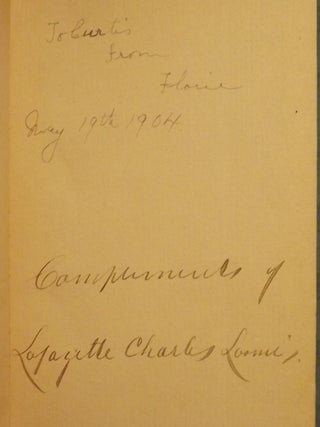 To Curtis
from
Florie
May 19th 1904
Compliments of
Lafayette Charles Loomis.